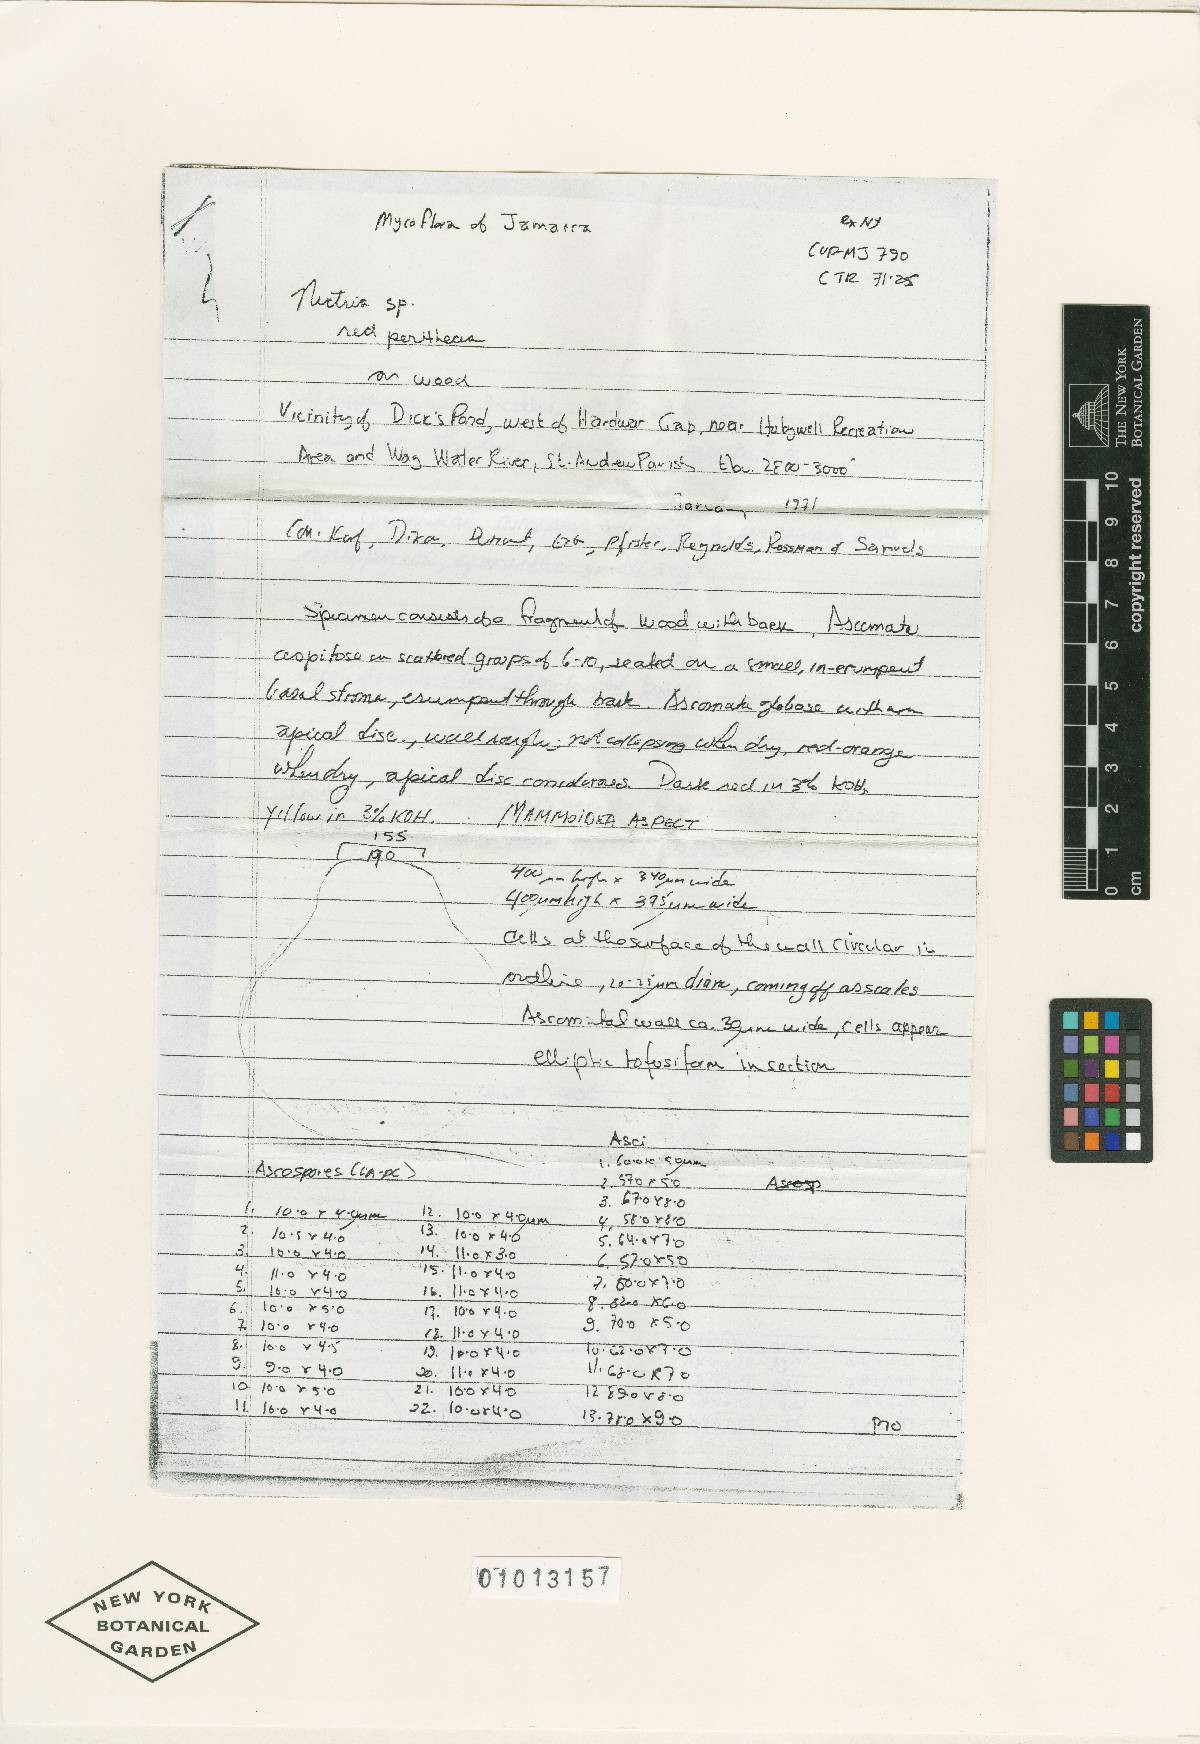 Mycoflora of Jamaica
ex NY
CUP-MJ 790
CTR 71-25
Nectria sp.
red perithecia
on wood
Vicinity of Dick's Pond, west of Hardwar Gap, near Hollywell Recreation
Area and Wag Water River, St. Andrew Parish Elev. 2800-3000'
January 1971
Coll. Korf, Dixon, Durand, Erb, Pfister, Reynolds, Rossman & Samuels
Specimen consists of a fragment of wood with bark. Ascomata
cespitose in scattered groups of 6-10, seated on a small, in-erumpent
basal stroma, erumpent through bark. Ascomata globose with an
apical disc, wall rough; not collapsing when dry, red-orange
when dry, apical disc Dark red in 3% KOH,
yellow in 3% KOH. MAMMOIDEA ASPECT
155
190
400 µm high x 340 µm wide
400 µm high x 375 µm wide
Cells at the surface of the wall circular in
outline, 20-25 µm diam, coming off as scales
Ascomatal wall ca. 30 µm wide, cells appear
elliptic to fusiform in section
Asci
Ascospores (LA-PC)
1. 60.0 x 5.0 µm
2. 57.0 x 5.0
Ascosp
3. 67.0 x 8.0
1. 10.0 x 4.0 µm 12. 10.0 x 4.0 µm 4. 58.0 x 8.0
2. 10.5 x 4.0 13. 10.0 x 4.0 5. 64.0 x 7.0
3. 10.0 x 4.0 14. 11.0 x 3.0 6. 57.0 x 5.0
4. 11.0 x 4.0 15. 11.0 x 4.0 7. 80.0 x 7.0
5. 10.0 x 4.0 16. 11.0 x 4.0 8. 82.0 x 6.0
6. 10.0 x 5.0 17. 10.0 x 4.0 9. 70.0 x 5.0
7. 10.0 x 4.0 18. 11.0 x 4.0
8. 10.0 x 4.5 19. 10.0 x 4.0 10. 62.0 x 7.0
9. 9.0 x 4.0 20. 11.0 x 4.0 11. 68.0 x 7.0
10. 10.0 x 5.0 21. 10.0 x 4.0 12. 89.0 x 8.0
11. 10.0 x 4.0 22. 10.0 x 4.0 13. 78.0 x 9.0
01013157
NEW YORK
BOTANICAL
GARDEN
THE NEW YORK
BOTANICAL GARDEN
copyright reserved
0 1 2 3 4 5 6 7 8 9 10
cm